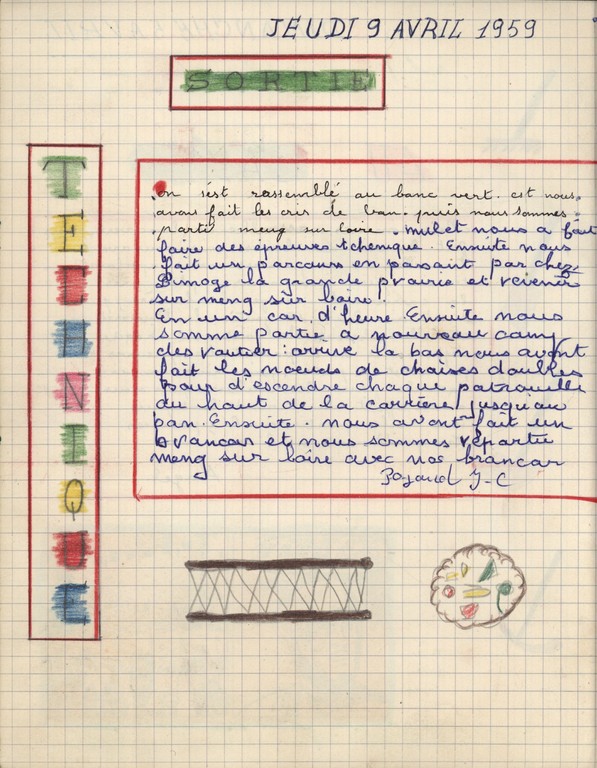 JEUDI 9 AVRIL 1959
SORTIE
TECHNIQUE
on s'est rassemblé au banc vert. est nous
avons fait les cris de ban. puis nous sommes
partie meng sur loire. mulet nous a fait
faire des épreuves tchemique. Ensuite nous
fait un parcours en passant par chez
Limoge la grande prairie et revenir
sur meng sur loire!
En un car d'heure Ensuite nous
somme partie a nouveau camp
des vautier: arrivé la bas nous avont
fait les noeuds de chaises doubles
pour d'escendre chaque patrouille
du haut de la carrière jusqu'au
ban. Ensuite. nous avont fait un
brancar et nous sommes répartie
meng sur loire avec nos brancar
J-C